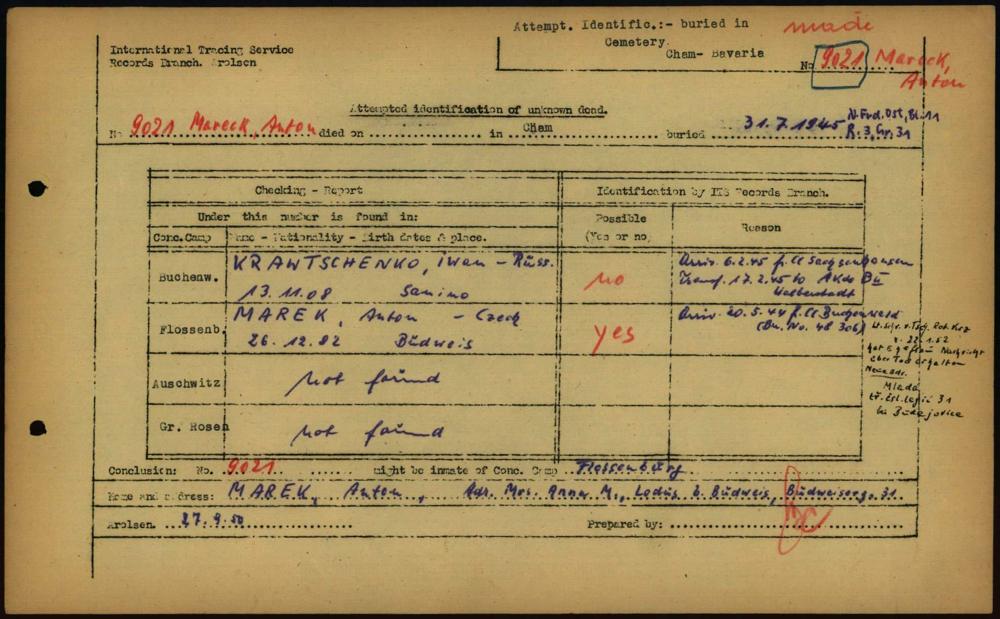 Attempt. Identific.:- buried in made
Cemetery.
Cham- Bavaria
International Tracing Service
Records Branch. Arolsen
No 9021 Mareck,
Anton
Attempted identification of unknown dead.
No 9021 Mareck, Anton died on .......... in Cham .......... buried 31.7.1945 N.Frd.Ost, Bl. 11
R. 3, Gr. 31
Checking - Report
Identification by ITS Records Branch.
Under this number is found in:
Possible
(Yes or no)
Reason
Conc.Camp
Name - Nationality - Birth dates & place.
Buchenw.
KRAWTSCHENKO, Iwan - Russ.
13.11.08 Sanino
no
Arriv. 6.2.45 f. CC Sachsenhausen
Transf. 17.2.45 to AKdo Bu
Halberstadt
Flossenb.
MAREK, Anton - Czech
26.12.82 Budweis
yes
Arriv. 20.5.44 f. CC Buchenwald
(Bu. No. 48 306)
Auschwitz
not found
Gr. Rosen
not found
v. 22.1.52
hat Ehefrau Nachricht
über Tod erhalten
Neue Adr.
Mladé
tř. čsl. legií 31
bei Budějovice
Conclusion: No. 9021 ...... might be inmate of Conc. Camp Flossenbürg
Name and address: MAREK, Anton, Adr. Mrs. Anna M., Ledus b. Budweis, Budweiserg. 31
Arolsen 27.9.50
Prepared by: ..........